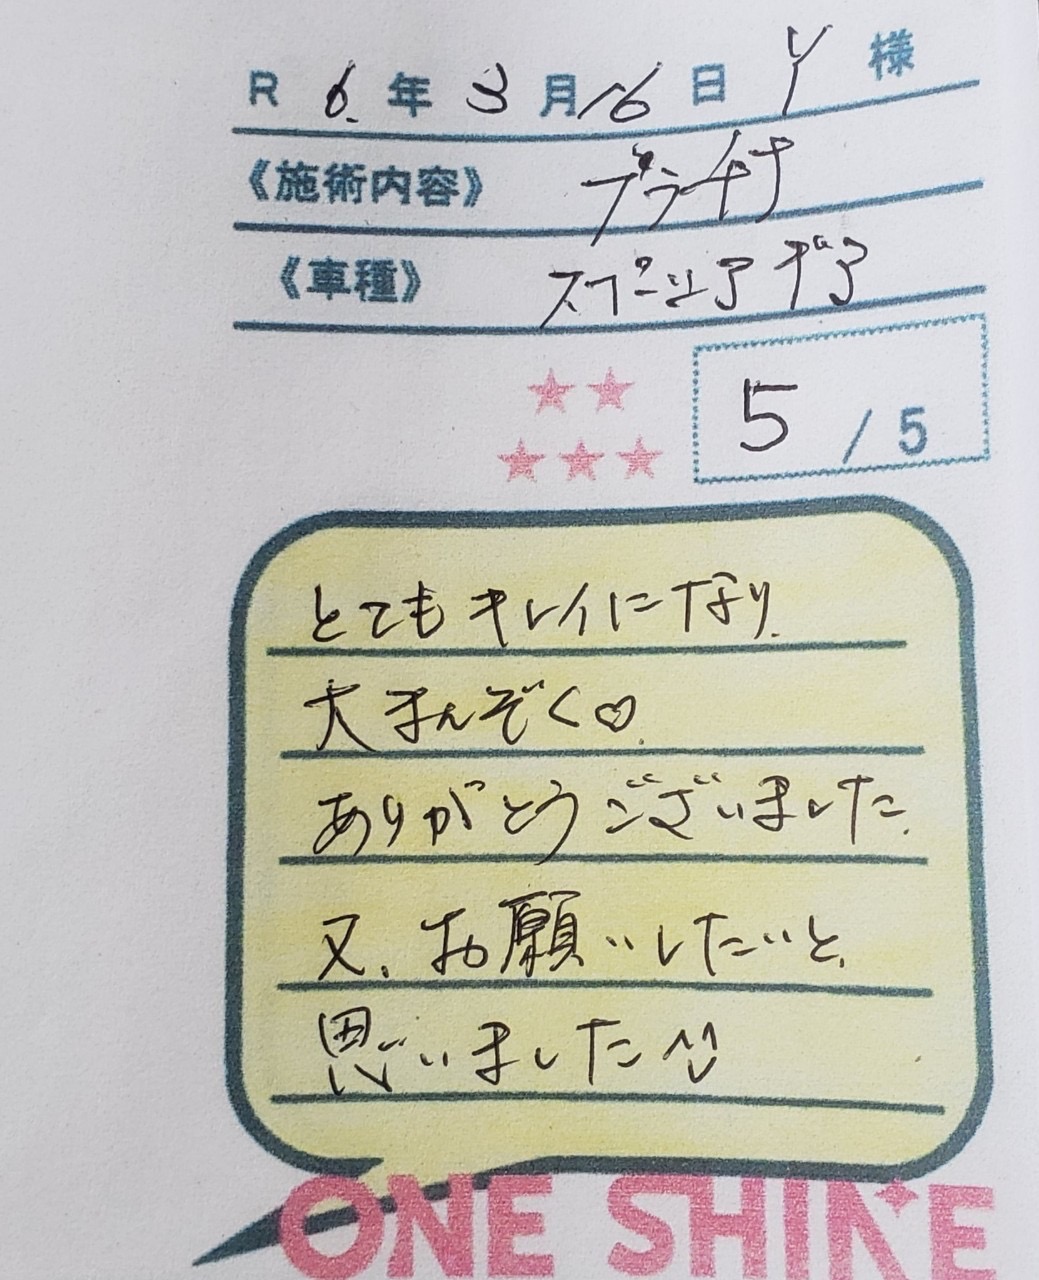 R 6. 年 3 月 16 日 Y 様
《施術内容》
《車種》 スペーシアギア
5 / 5
とてもキレイになり、
大まんぞく♡、
ありがとうございました、
又、お願いしたいと、
思いました^^
ONE SHINE